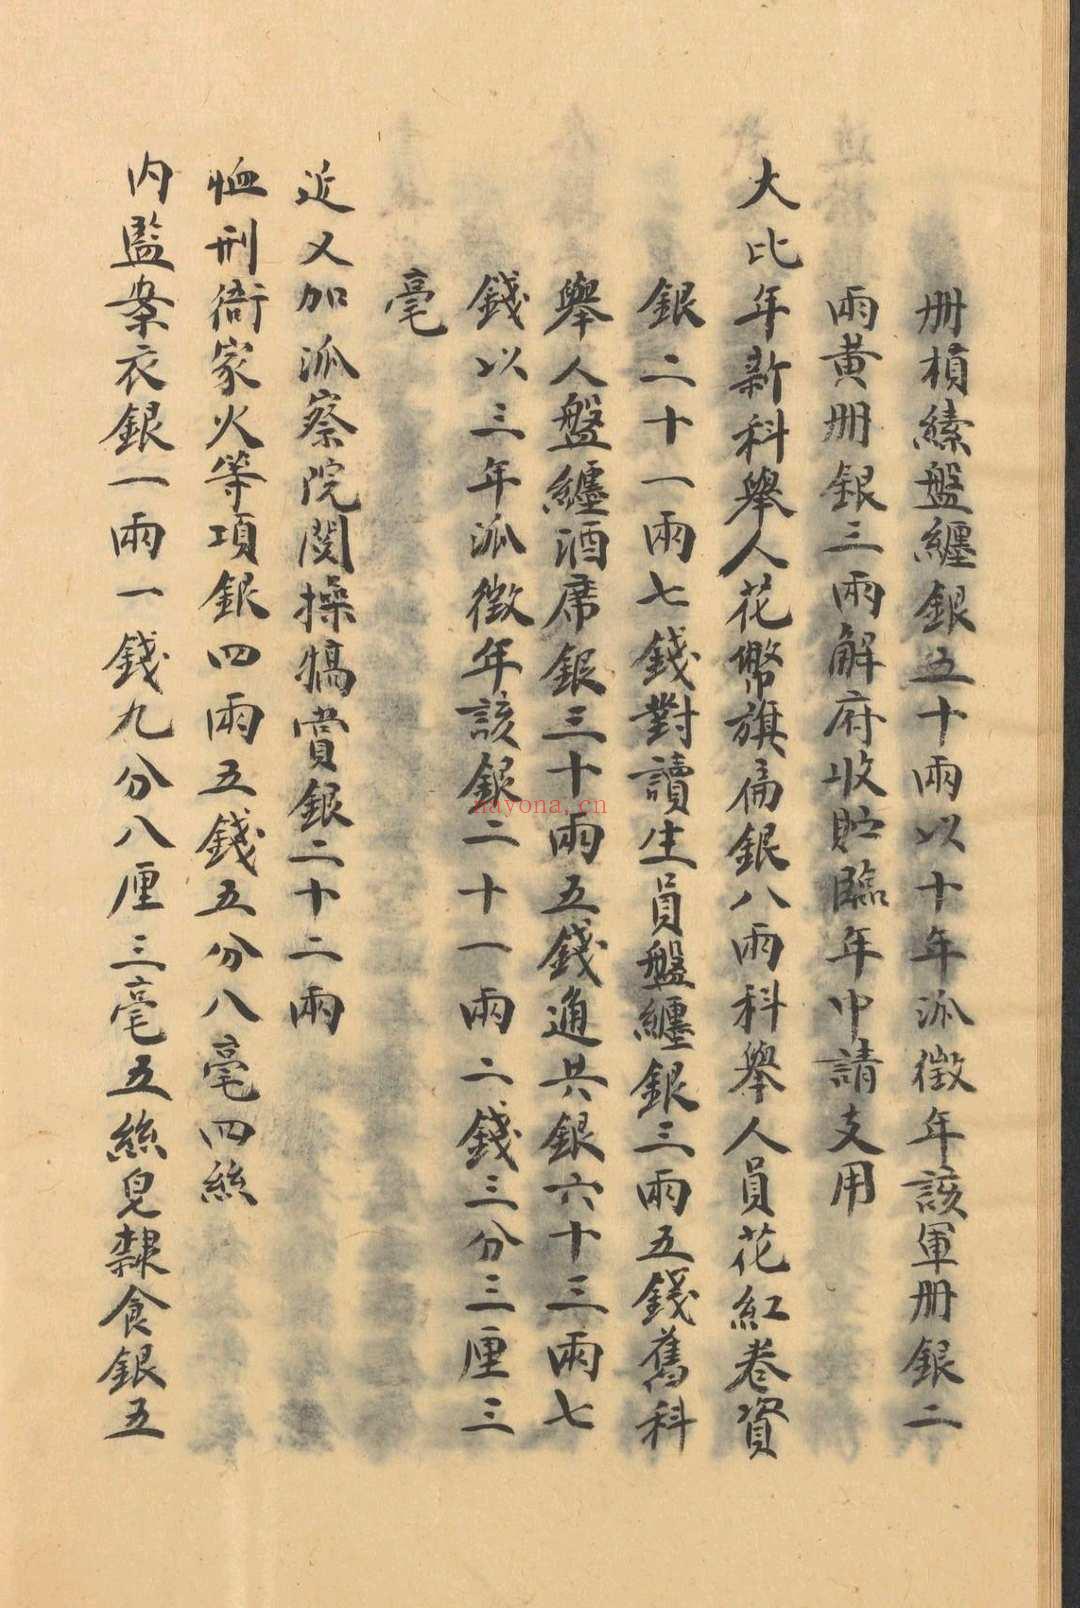 册槓縤盤纏銀五十兩以十年派徵年該軍册銀二
兩黄册銀三兩解府收貯臨年申請支用
大比年新科舉人花幣旗扁銀八兩科舉人員花紅卷資
銀二十一兩七錢對讀生員盤纏銀三兩五錢舊科
舉人盤纏酒席銀三十兩五錢通共銀六十三兩七
錢以三年派徵年該銀二十一兩二錢三分三厘三
毫
近又加派察院閱操犒賞銀二十二兩
恤刑衙家火等項銀四兩五錢五分八毫四絲
内監案衣銀一兩一錢九分八厘三毫五絲皂隸食銀五
nayona.cn